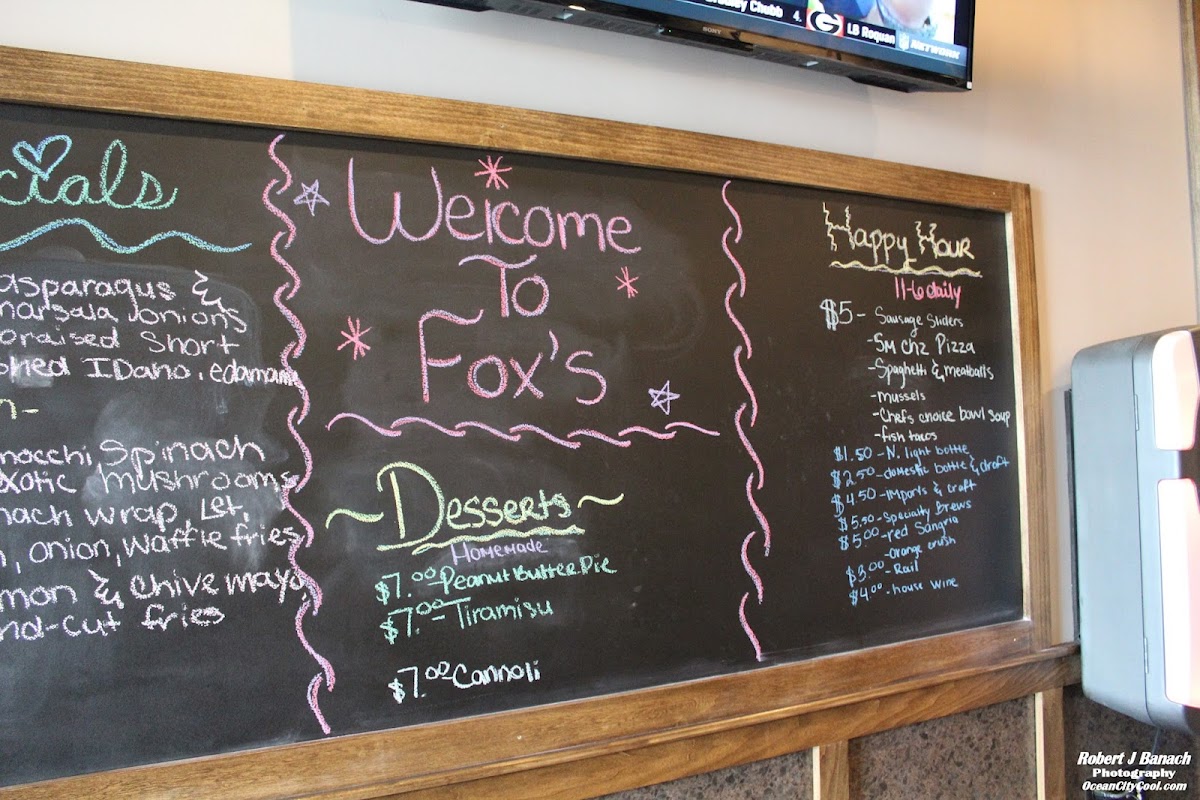 Bradley Chubb 4. G LB Roquan NFL NETWORK
SONY
cials
asparagus &
marsala, onions
braised Short
shed IDaho, edamame
n-
nocchi, Spinach
xotic mushrooms
nach wrap, Let,
, onion, waffle fries
mon & chive mayo,
nd-cut fries
Welcome
To
Fox's
~Desserts~
Homemade
$7.00-Peanut Butter Pie
$7.00-Tiramisu
$7.00-Cannoli
Happy Hour
11-6 daily
$5 - Sausage Sliders
-Sm chz Pizza
-Spaghetti & meatballs
-mussels
-Chefs choice bowl soup
-fish tacos
$1.50 - N. light bottle
$2.50 -domestic bottle & draft
$4.50 -Imports & craft
$5.50 -Specialty Brews
$5.00 -red Sangria
-Orange crush
$3.00 -Rail
$4.00 - house wine
Robert J Banach
Photography
OceanCityCool.com